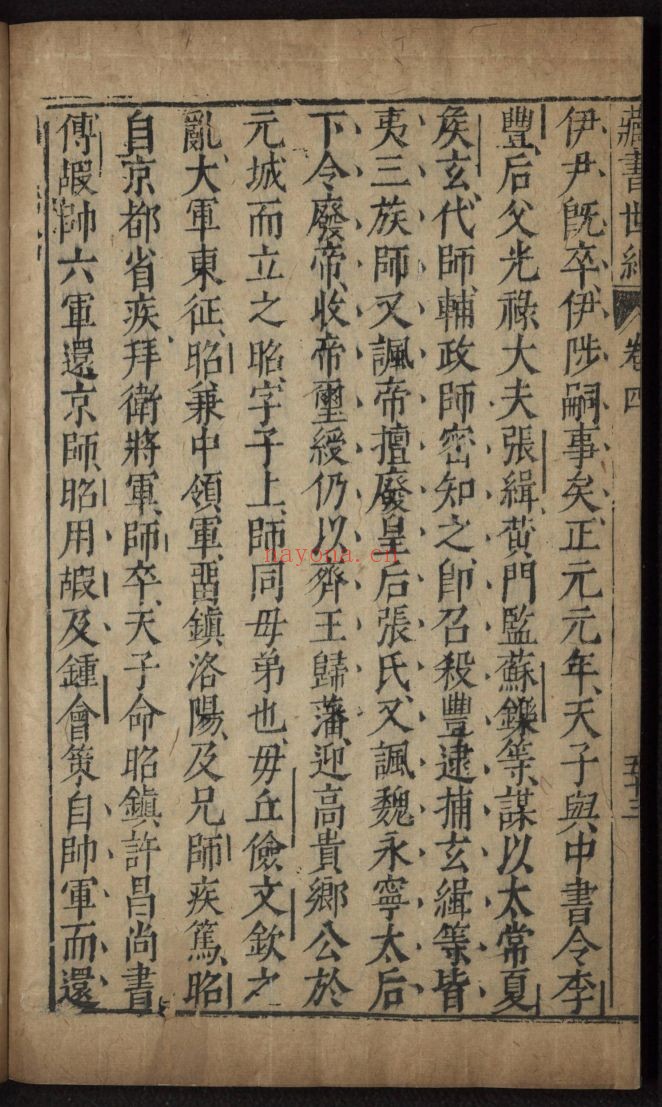 藏書世紀 卷四 五十三
伊尹既卒、伊陟嗣事矣、正元元年、天子與中書令李
豐、后父光祿大夫張緝、黃門監蘇鑠等、謀以太常夏
矦玄、代師、輔政師密知之、卽召殺豐逮捕玄緝等皆
夷三族師又諷帝擅廢皇后張氏、又諷魏永寧太后
下令廢帝、收帝璽綬仍以齊王歸藩、迎高貴鄉公於
元城而立之昭、字子上、師同母弟也、毋丘儉文欽之
亂、大軍東征、昭兼中領軍、畱鎮洛陽、及兄師疾篤、昭
自京都省疾、拜衛將軍、師卒、天子命昭鎮許昌尚書
傅嘏帥六軍還京師、昭用嘏及鍾會策、自帥軍而還
nayona.cn